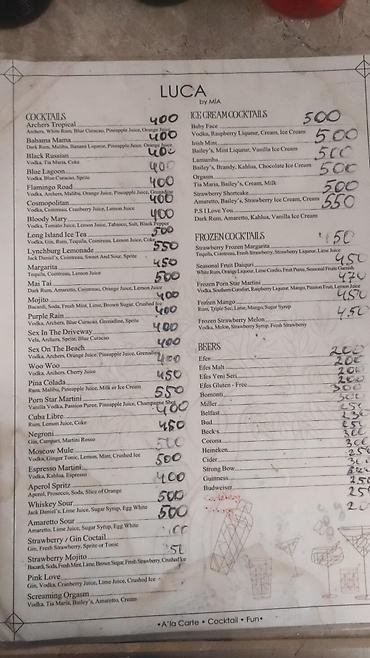 LUCA
by MIA
COCKTAILS
Archers Tropical 400
Archers, White Rum, Blue Curacao, Pineapple Juice, Orange Juice
Bahama Mama 400
Dark Rum, Malibu, Banana Liqueur, Pineapple Juice, Orange Juice
Black Russian 400
Vodka, Tia Maria, Coke
Blue Lagoon 400
Vodka, Blue Curacao, Sprite
Flamingo Road 400
Vodka, Archers, Malibu, Pineapple Juice, Grenadine
Cosmopolitan 400
Vodka, Cointreau, Cranberry Juice, Lemon Juice
Bloody Mary 400
Vodka, Tomato Juice, Lemon Juice, Tabasco, Salt, Black Pepper
Long Island Ice Tea 500
Vodka, Gin, Rum, Tequila, Cointreau, Lemon Juice, Coke
Lynchburg Lemonade 550
Jack Daniel's, Cointreau, Sweet And Sour, Sprite
Margarita 450
Tequila, Cointreau, Lemon Juice
Mai Tai 500
Dark Rum, Amaretto, Cointreau, Orange Juice, Lemon Juice
Mojito 400
Bacardi, Soda, Fresh Mint, Lime, Brown Sugar, Crushed Ice
Purple Rain 400
Vodka, Archers, Blue Curacao, Grenadine, Sprite
Sex In The Driveway 400
Archers, Sprite, Blue Curacao
Sex On The Beach 400
Vodka, Archers, Orange Juice, Pineapple Juice, Grenadine
Woo Woo 400
Vodka, Archers, Cherry Juice
Pina Colada 450
Rum, Malibu, Pineapple Juice, Milk or Ice Cream
Porn Star Martini 550
Vanilla Vodka, Passion Puree, Pineapple Juice, Champagne Shot
Cuba Libre 400
Rum, Lemon Juice, Coke
Negroni 450
Gin, Campari, Martini Rosso
Moscow Mule 500
Vodka, Ginger Tonic, Lemon, Mint, Crushed Ice
Espresso Martini 500
Vodka, Kahlua, Espresso
Aperol Spritz 400
Aperol, Prosecco, Soda, Slice of Orange
Whiskey Sour 500
Jack Daniel's, Lime Juice, Sugar Syrup, Egg White
Amaretto Sour 500
Amaretto, Lime Juice, Sugar Syrup, Egg White
Strawberry / Gin Coctail
Gin, Fresh Strawberry, Sprite or Tonic
Strawberry Mojito
Bacardi, Soda, Fresh Mint, Lime, Brown Sugar, Fresh Strawberry, Crushed Ice
Pink Love
Gin, Vodka, Cranberry Juice, Lime Juice, Crushed Ice
Screaming Orgasm
Vodka, Tia Maria, Bailey's, Amaretto, Cream
ICE CREAM COCKTAILS
Baby Face 500
Vodka, Raspberry Liqueur, Cream, Ice Cream
Irish Mint 500
Bailey's, Mint Liqueur, Vanilla Ice Cream
Lamumba 500
Bailey's, Brandy, Kahlua, Chocolate Ice Cream
Orgasm 500
Tia Maria, Bailey's, Cream, Milk
Strawberry Shortcake 500
Amaretto, Bailey's, Strawberry Ice Cream, Cream
P.S I Love You 550
Dark Rum, Amaretto, Kahlua, Vanilla Ice Cream
FROZEN COCKTAILS
Strawberry Frozen Margarita
Tequila, Cointreau, Fresh Strawberry, Strawberry Liqueur, Lime Juice
Seasonal Fruit Daiquiri 450
White Rum, Orange Liqueur, Lime Cordio, Fruit Puree, Seasonal Fruits
Frozen Porn Star Martini
Vodka, Southern Comfort, Raspberry Liqueur, Mango, Passion Fruit, Lemon Juice
Frozen Mango 450
Rum, Triple Sec, Lime, Mango, Sugar Syrup
Frozen Strawberry Melon 450
Vodka, Melon, Strawberry Syrup, Fresh Strawberry
BEERS
Efes 200
Efes Malt 200
Efes Yeni Seri 200
Efes Gluten - Free 300
Bomonti
Miller
Belfast
Bud
Beck's
Corona
Heineken
Cider
Strong Bow
Guinness
Budweiser
•A'la Carte • Cocktail • Fun•